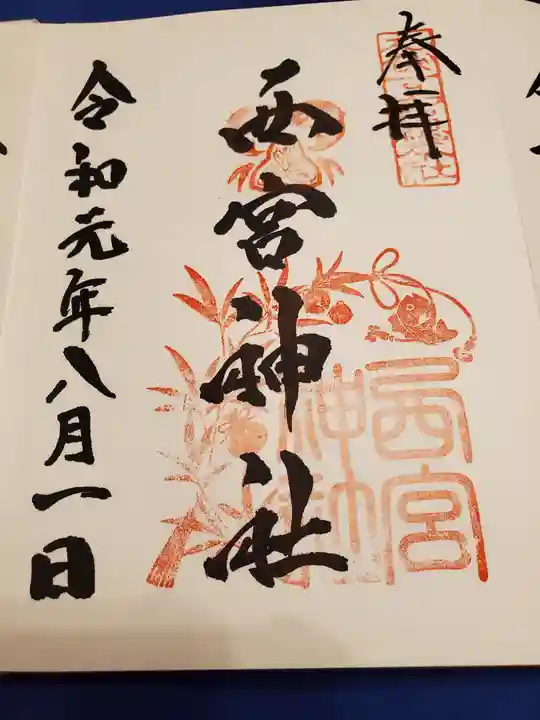 奉拝
西宮神社
令和元年八月一日
西宮
神社